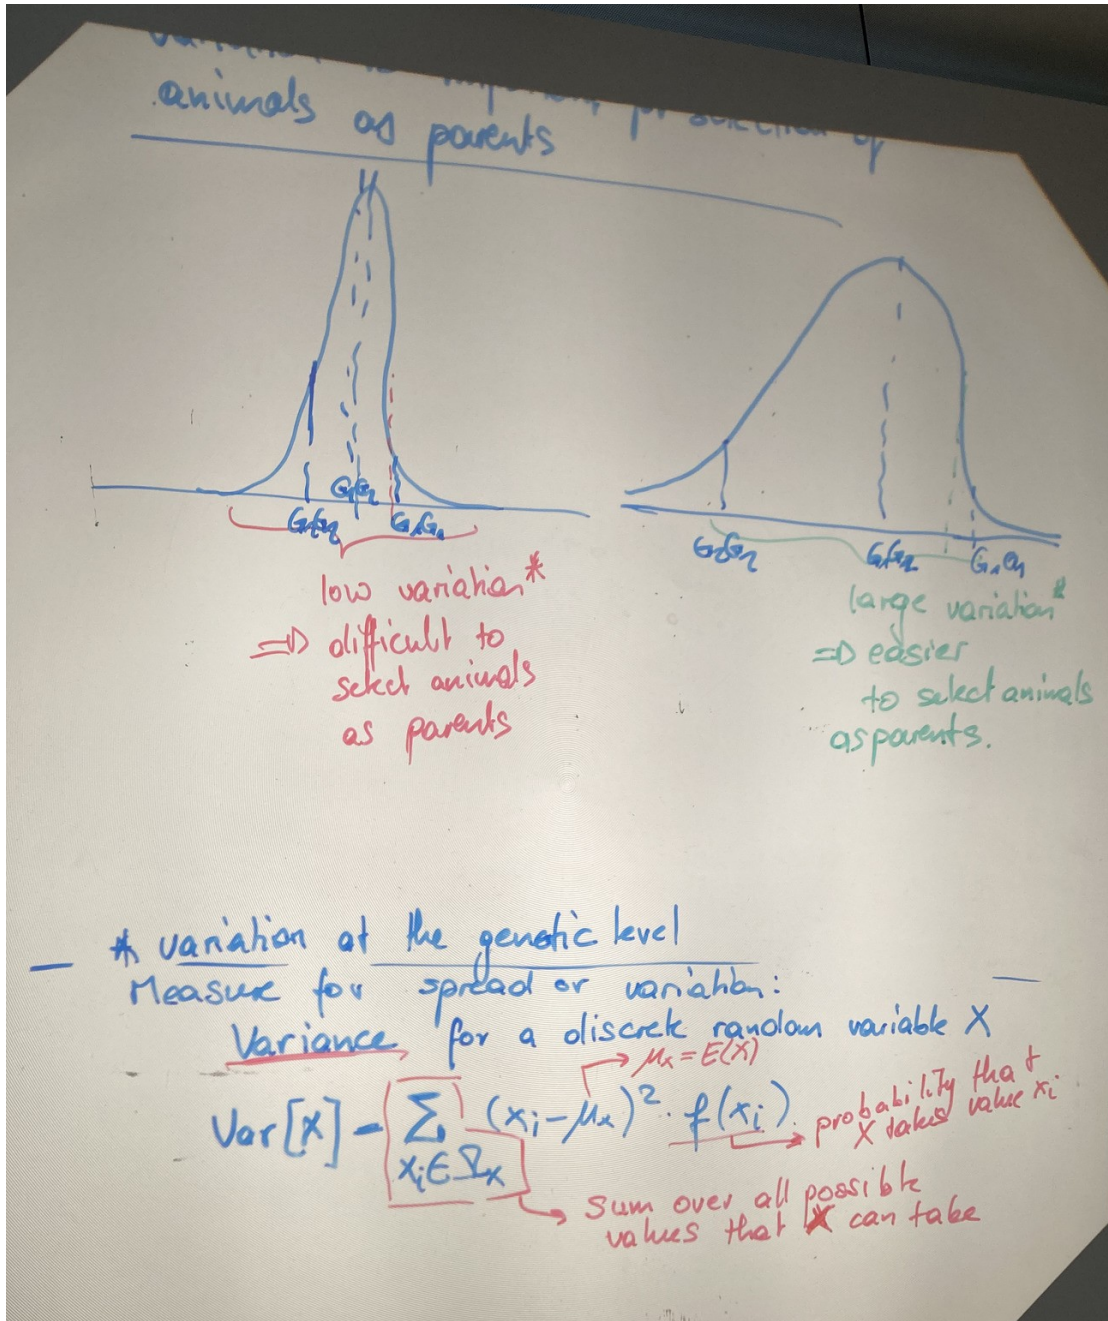 animals as parents
G₁G₂
G₂G₂
G₁G₁
G₂G₂
G₁G₂
G₁G₁
low variation*
⇒ difficult to
select animals
as parents
large variation*
⇒ easier
to select animals
as parents.
* variation at the genetic level
Measure for spread or variation:
Variance for a discrete random variable X
μₓ = E(X)
Var[X] = ∑ (xᵢ - μₓ)² · f(xᵢ)
xᵢ ∈ Ωₓ
probability that
X takes value xᵢ
sum over all possible
values that X can take